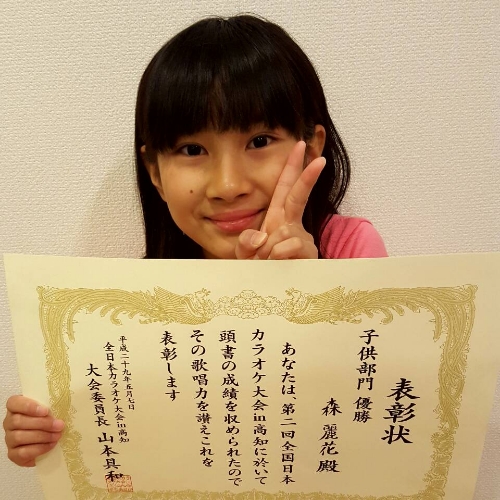 表彰状
子供部門 優勝
森 麗花 殿
あなたは、第二回全国日本
カラオケ大会in高知に於いて
頭書の成績を収められたので
その歌唱力を讃えこれを
表彰します
平成二十九年五月七日
全日本カラオケ大会in高知
大会委員長 山本具和